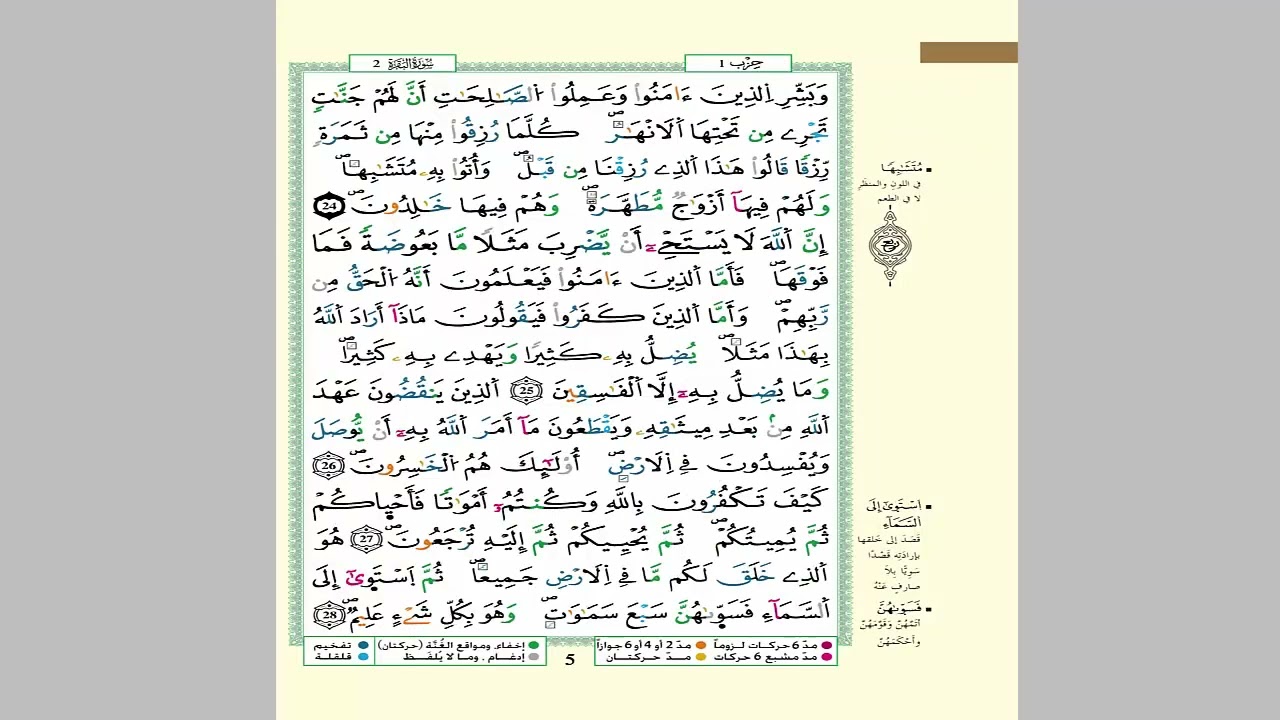 سُورَةُ البَقَرَة 2
حِزْب 1
وَبَشِّرِ اِلذِينَ ءَامَنُوا وَعَمِلُوا اُلصَّٰلِحَٰتِ أَنَّ لَهُمْ جَنَّٰتٖ
تَجْرِے مِن تَحْتِهَا اَلَانْهَٰرُۖ كُلَّمَا رُزِقُوا مِنْهَا مِن ثَمَرَةٖ
رِّزْقاٗ قَالُوا هَٰذَا اَلذِے رُزِقْنَا مِن قَبْلُۖ وَأُتُوا بِهِۦ مُتَشَٰبِهاٗۖ
وَلَهُمْ فِيهَآ أَزْوَٰجٞ مُّطَهَّرَةٞۖ وَهُمْ فِيهَا خَٰلِدُونَۖ 24
إِنَّ اَللَّهَ لَا يَسْتَحْيِۦٓ أَنْ يَّضْرِبَ مَثَلاٗ مَّا بَعُوضَةٗ فَمَا
فَوْقَهَاۖ فَأَمَّا اَلذِينَ ءَامَنُوا فَيَعْلَمُونَ أَنَّهُ اُلْحَقُّ مِن
رَّبِّهِمْۖ وَأَمَّا اَلذِينَ كَفَرُوا فَيَقُولُونَ مَاذَآ أَرَادَ اَللَّهُ
بِهَٰذَا مَثَلاٗۖ يُضِلُّ بِهِۦ كَثِيراٗ وَيَهْدِے بِهِۦ كَثِيراٗۖ
وَمَا يُضِلُّ بِهِۦٓ إِلَّا اَلْفَٰسِقِينَ 25 اَلذِينَ يَنقُضُونَ عَهْدَ
اَللَّهِ مِنۢ بَعْدِ مِيثَٰقِهِۦ وَيَقْطَعُونَ مَآ أَمَرَ اَللَّهُ بِهِۦٓ أَنْ يُّوصَلَ
وَيُفْسِدُونَ فِے اِلَارْضِۖ أُوْلَٰٓئِكَ هُمُ اُلْخَٰسِرُونَۖ 26
كَيْفَ تَكْفُرُونَ بِاللَّهِ وَكُنتُمُۥٓ أَمْوَٰتاٗ فَأَحْيٰاكُمْ
ثُمَّ يُمِيتُكُمْۖ ثُمَّ يُحْيِيكُمْ ثُمَّ إِلَيْهِ تُرْجَعُونَۖ 27 هُوَ
اَلذِے خَلَقَ لَكُم مَّا فِے اِلَارْضِ جَمِيعاٗۖ ثُمَّ اَسْتَوٰىٓ إِلَى
اَلسَّمَآءِ فَسَوّٰىٰهُنَّ سَبْعَ سَمَٰوَٰتٖۖ وَهُوَ بِكُلِّ شَےْءٍ عَلِيمٞۖ 28
مُتَشَٰبِهاٗ
في اللونِ والمنظَرِ
لا في الطعم
اَسْتَوٰىٓ إِلَى
اَلسَّمَآءِ
قَصَدَ إلى خلقها
بإرادَتِه قَصْدًا
سَوِيًّا بِلَا
صارفٍ عَنْهُ
فَسَوّٰىٰهُنَّ
أتَمَّهُنَّ وَقَوَّمَهُنَّ
وأحْكَمَهُنَّ
مدّ 6 حركـات لـزوماً
مدّ 2 أو 4 أو 6 جوازاً
مدّ مشبع 6 حركات
مـدّ حـركتـان
5
إخفاء، ومواقع الغُنَّة (حركتان)
تفخيم
إدغـام ، ومـا لا يُلفَـظ
قلقلة